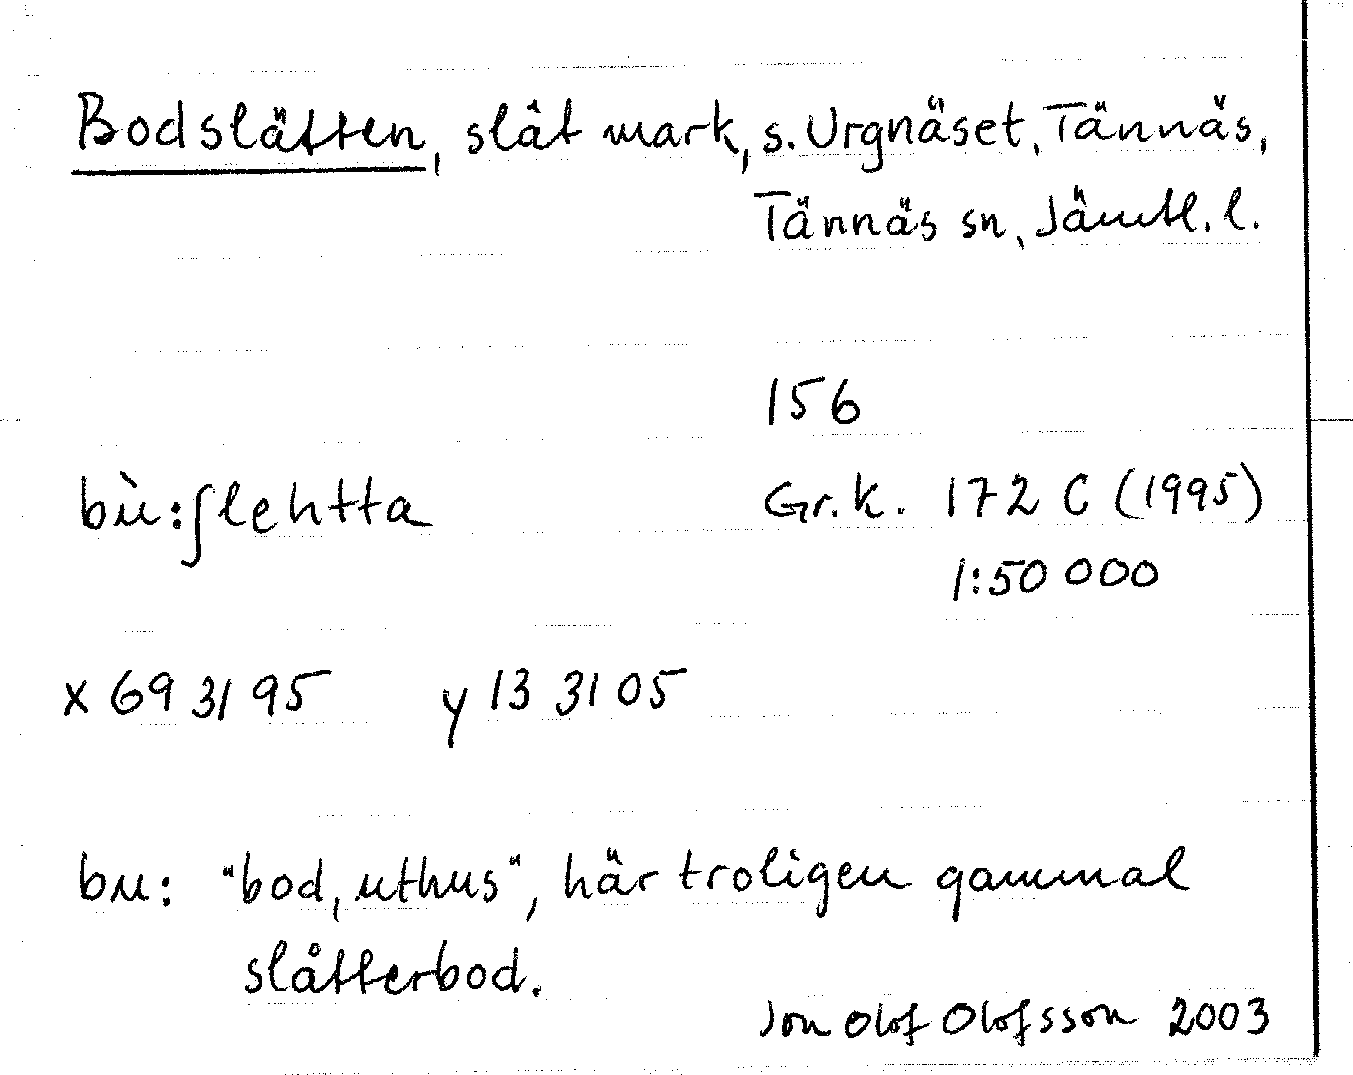 Bodslåtten, slåtmark, s. Urgnäset, Tännäs,
Tännäs sn, Jämtl. l.
156
bù:ʃlehtta Gr.k. 172 C (1995)
1:50 000
x 69 31 95 y 13 31 05
bu: "bod, uthus", här troligen gammal
slåtterbod.
Jon Olof Olofsson 2003